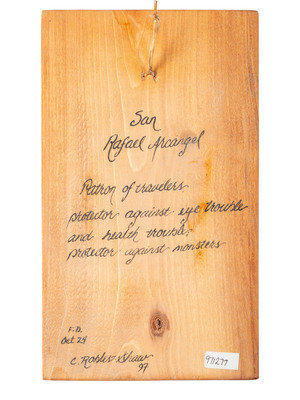 San
Rafael Arcangel
Patron of travelers
protector against eye trouble
and health trouble,
protector against monsters
F.D.
Oct 24
C. Robles-Shaw
97